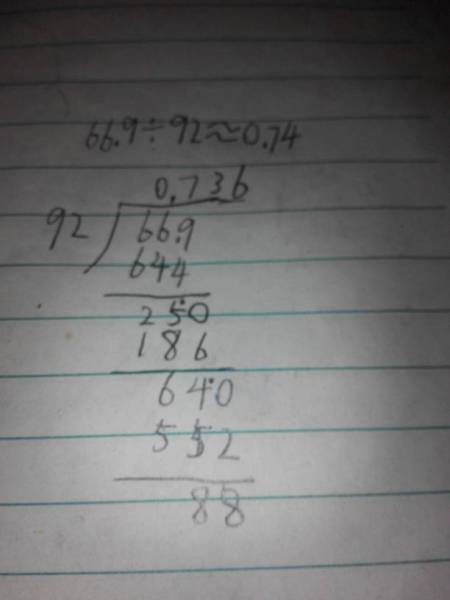 66.9÷92≈0.74
0.736
92 66.9
644
250
186
640
552
88